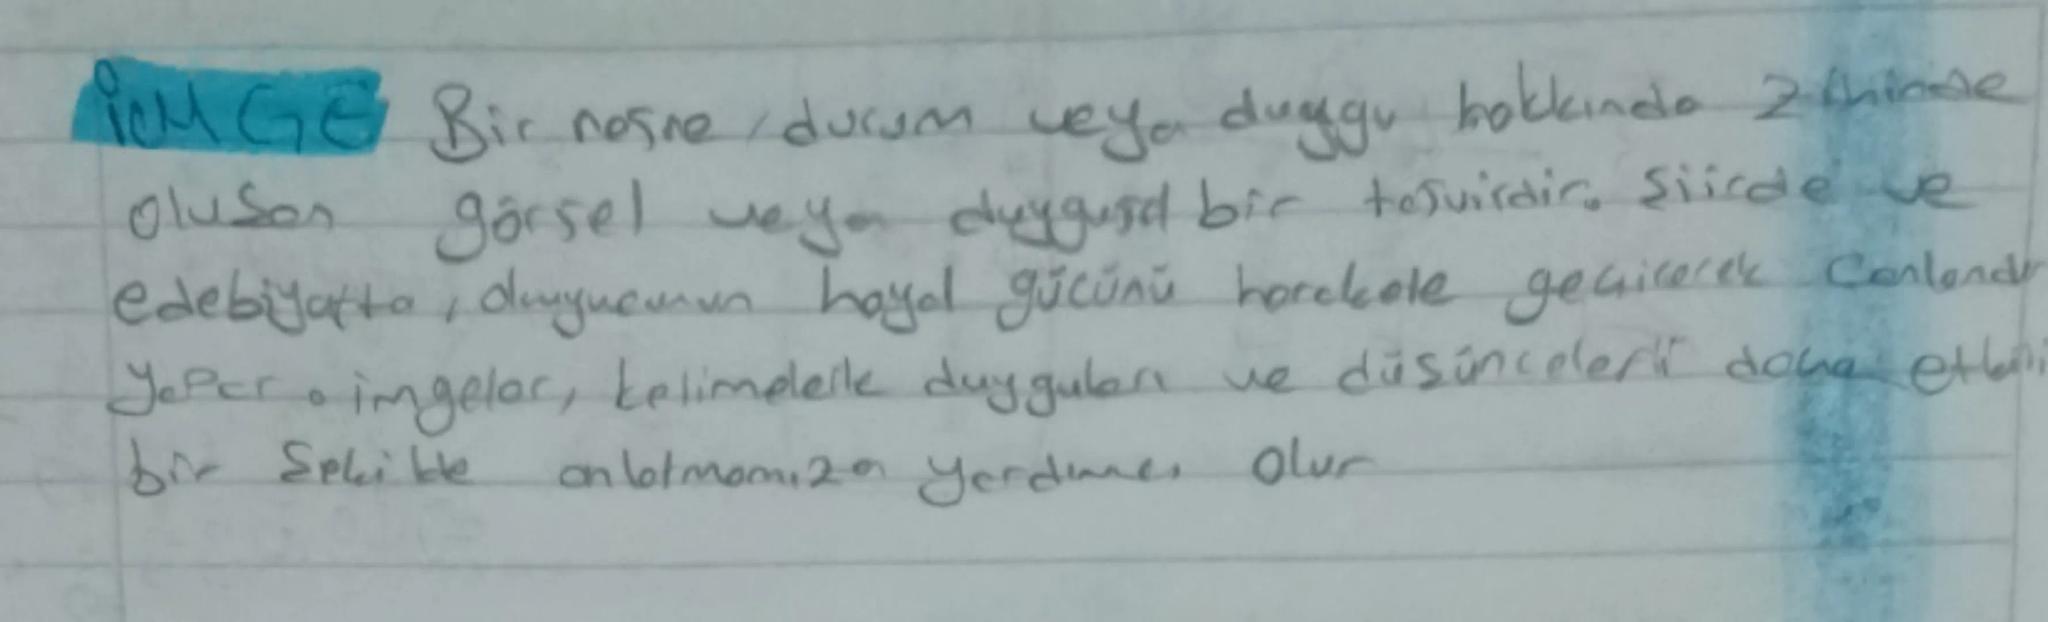 İMGE Bir nesne, durum veya duygu hakkında zihinde
oluşan görsel veya duygusal bir tasvirdir. Şiirde ve
edebiyatta, duyucunun hayal gücünü harekete geçirerek Canlandır
yapar. imgeler, kelimelerle duyguları ve düşünceleri daha etkili
bir Şekilde anlatmamıza yardımcı Olur